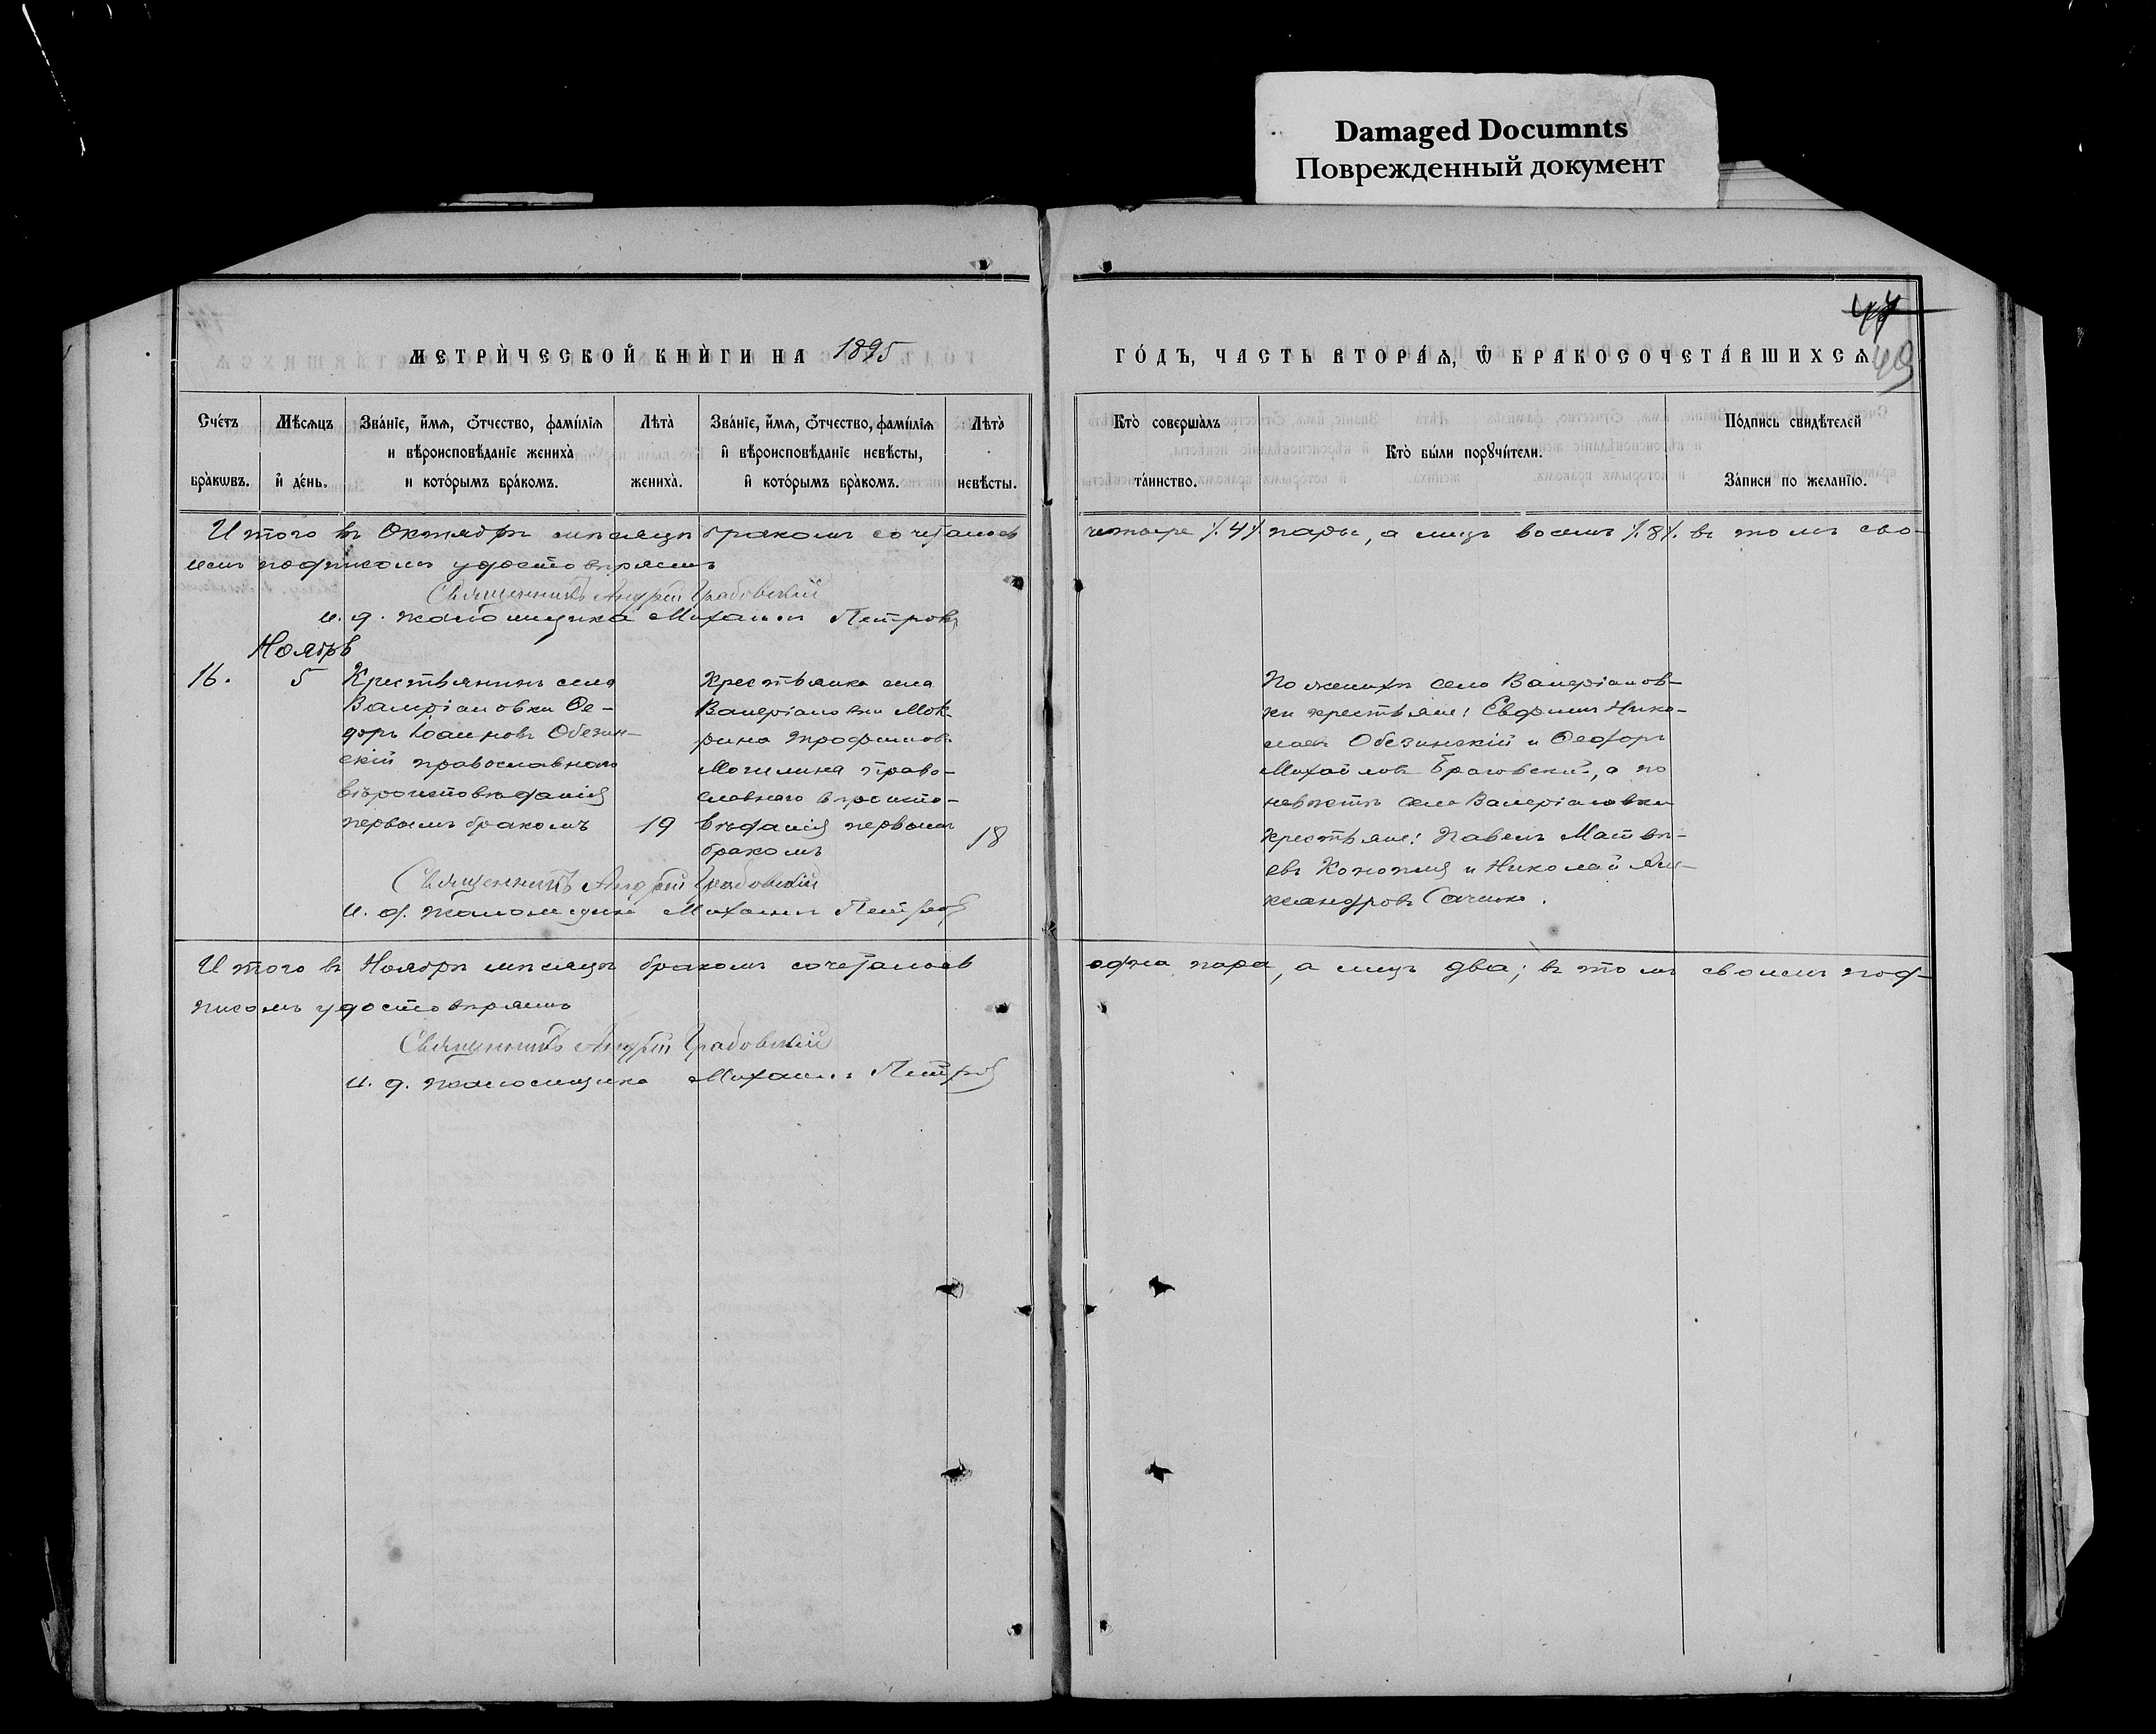 Damaged Documnts
Поврежденный документ
47
49
МЕТРИ́ЧЕСКОЙ КНИ́ГИ НА 1895
ГО́ДЪ, ЧАСТЬ ВТОРА́Я, Ѿ БРАКОСОЧЕТА́ВШИХСЯ
Сче́тъ бра́кωвъ.
Мѣ́сяцъ и҆ де́нь.
Зва́нїе, и҆́мя, ѻ҆́тчество, фамѝлїя и вѣроисповѣ́данїе жениха̀ и кото́рымъ бра́комъ.
Лѣта̀ жениха̀.
Зва́нїе, и҆́мя, ѻ҆́тчество, фамѝлїя и҆ вѣроисповѣ́данїе невѣ́сты, и҆ кото́рымъ бра́комъ.
Лѣта̀ невѣ́сты.
Кто̀ соверша́лъ та́инство.
Кто̀ бы́ли порꙋчи́тели.
По́дпись свидѣ́телей За́писи по жела́нїю.
Итого въ Октябрѣ мѣсяцѣ бракомъ сочеталось четыре ./.4./. пары, а лицъ восемь ./.8./. въ томъ сво-
имъ подписомъ удостовѣряемъ
Священникъ Андрей Грабовскій
и. д. псаломщика Михаилъ Петровъ
Ноябрь
16.
5
Крестьянинъ села
Валеріановки Ѳе-
доръ Іоанновъ Обезин-
скій православнаго
вѣроисповѣданія
первымъ бракомъ
19
Крестьянка села
Валеріановки Мок-
рина Трофимова
Могилина право-
славнаго вѣроиспо-
вѣданія первымъ
бракомъ
18
По женихѣ села Валеріанов-
ки крестьяне: Евфимъ Нико-
лаевъ Обезинскій и Ѳеодоръ
Михайловъ Браговскій, а по
невѣстѣ села Валеріановки
крестьяне: Павелъ Матвѣ-
евъ Конопля и Николай Але-
ксандровъ Саченко.
Священникъ Андрей Грабовскій
И. д. псаломщика Михаилъ Петровъ
Итого въ Ноябрѣ мѣсяцѣ бракомъ сочеталось одна пара, а лицъ два; въ томъ своимъ под-
писомъ удостовѣряемъ
Священникъ Андрей Грабовскій
и. д. псаломщика Михаилъ Петровъ